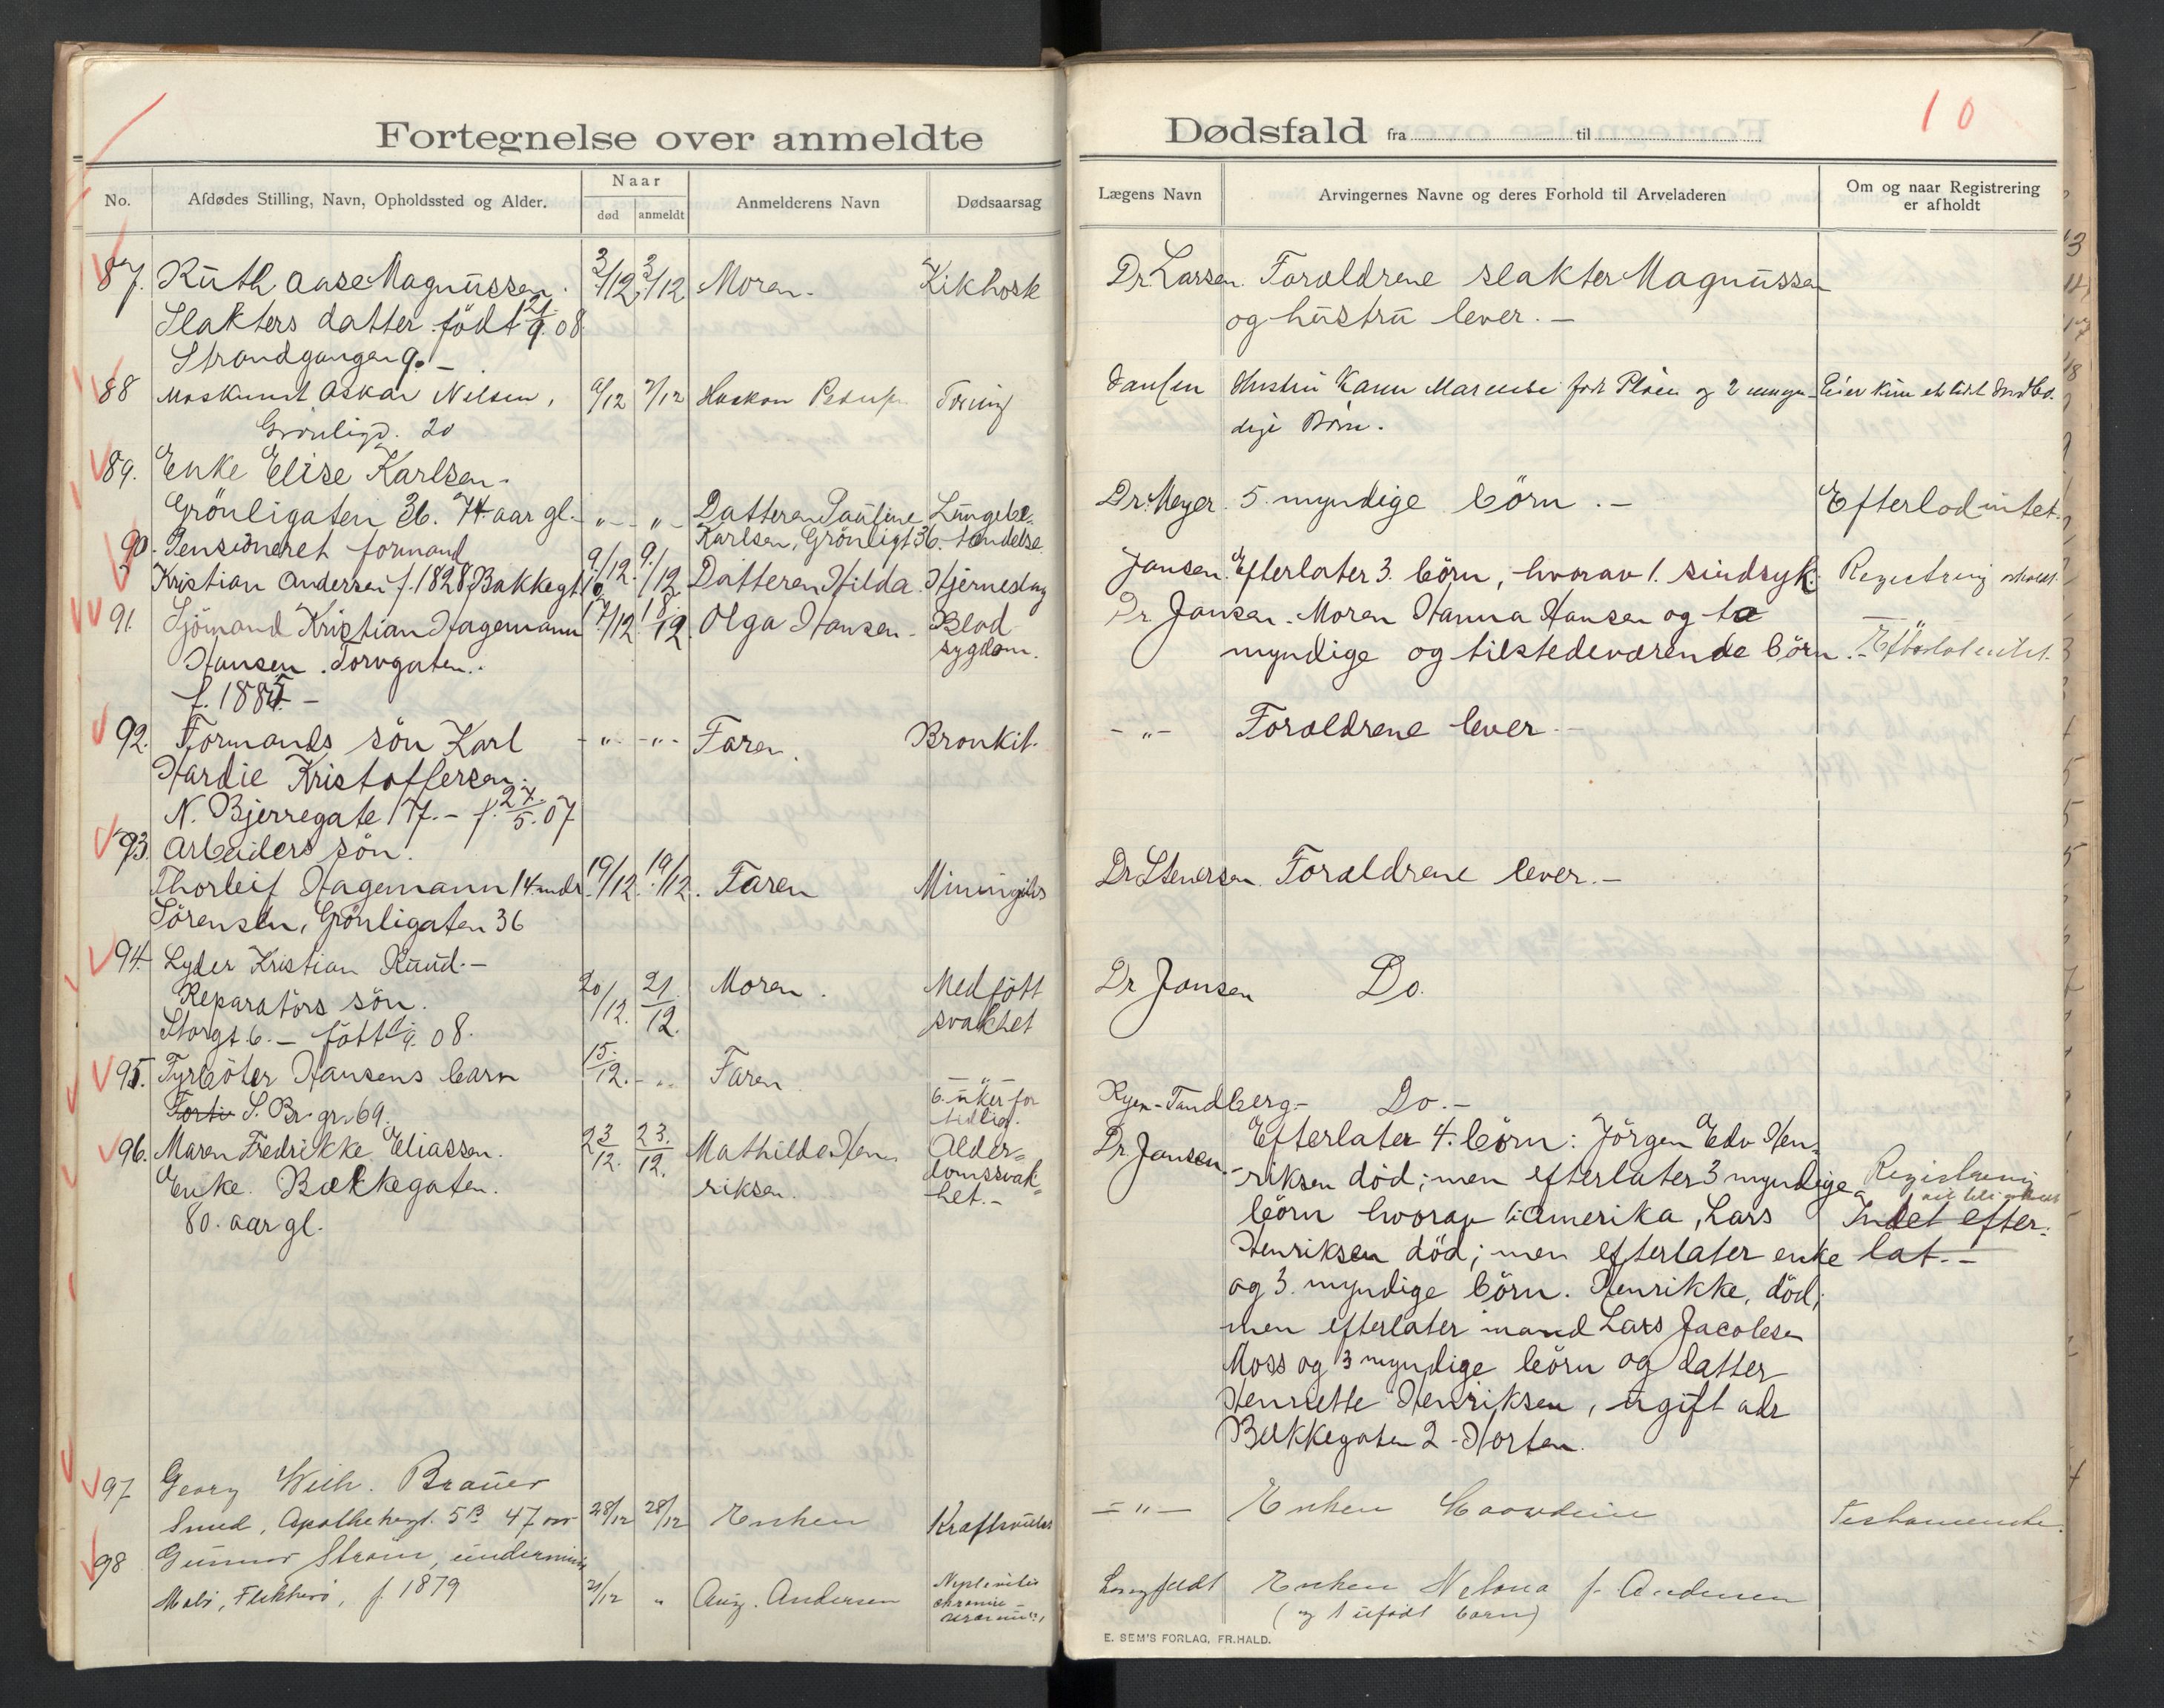 Fortegnelse over anmeldte
No.
Afdødes Stilling, Navn, Opholdssted og Alder.
Naar
død
anmeldt
Anmelderens Navn
Dødsaarsag
87. Ruth Aase Magnussen. 3/12 3/12 Moren. Kikhosk
Slakters datter født 21/9 08
Strandgangen 9. –
88 Maskinist Oskar Nilsen, 6/12 7/12 Haakon
Grønligt. 20
89. Enke Elise Karlsen.
Grönligaten 36. 74 aar gl. – „ – „ – Datteren Pauline Lungebe=
Karlsen, Grönligt 36. tændelse
90. Pensioneret formand
Kristian Andersen f. 1828 Bakkegt 16 9/12. 9/12 Datteren Hilda. Hjerneslag
91. Sjömand Kristian Hagemann 17/12 18/12 Olga Hansen – Blod
Hansen. Torvgaten. sygdom.
f. 1885 –
92. Formands sön Karl – „ – – „ – Faren. Bronkit.
Hardie Kristoffersen.
N. Bjerregate 17. – f. 27/5. 07
93. Arbeiders sön.
Thorleif Hagemann 14 mdr 19/12 19/12. Faren
Sörensen, Grönligaten 36
94. Lyder Kristian Ruud. –
Reparatörs sön. 20/12. 21/12. Moren. Medfött
Storgt 6. – fött 08. svakhet
95. Fyrböter Hansens barn 15/12. – „ Faren
S. Br. gr. 69. 6. uker for
tidlig.
96. Maren Fredrikke Eliassen. 23/12. 23/12. Mathilde Hen Alder=
Enke. Bakkegaten. riksen. domssvak=
80. aar gl. het. –
97 Georg Wilh. Brauer
Smed, Apothekergt. 5 B 47 aar 28/12 28/12 Enken
98 Gunnar Strøm, underminør
f. 1879 21/12 „ Aug. Andersen
Dødsfald fra til
10
Lægens Navn
Arvingernes Navne og deres Forhold til Arveladeren
Om og naar Registrering
er afholdt
Dr. Larsen Foraldrene slakter Magnussen
og hustru lever. –
Jansen Hustru Karen født og 2 umyn-
dige Börn.
Dr. Meyer. 5. myndige börn. – Efterlod intet.
Jansen. Efterlater 3. börn, hvorav 1. sindsyk. Registrering
Dr Jansen. Moren Hanna Hansen og to
myndige og tilstedeværende börn.
– „ – Foraldrene lever. –
Dr Stenersen. Foraldrene lever. –
Dr Jansen Do.
Tandberg – Do. –
Dr. Jansen. – Efterlater 4. börn: Jörgen Edv Hen=
riksen död; men efterlater 3 myndige Registrering
börn hvorav 1 i Amerika, Lars Intet efter=
Henriksen död; men efterlater enke lat. –
og 3. myndige börn. Henrikke, död;
men efterlater mand Lars Jacobsen
Moss og 3 myndige börn og datter
Henriette Henriksen, ugift adr
Bakkegaten 2 – Horten.
– „ – Enken Testamente.
Langfeldt Enken f. Andersen
(og 1 ufødt barn)
E. SEM'S FORLAG, FR.HALD.